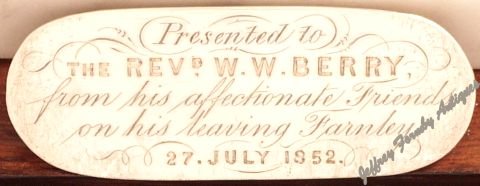 Presented to
THE REVD. W. W. BERRY,
from his affectionate Friend
on his leaving Farnley
27. JULY 1852.
Jeffrey Formby Antiques